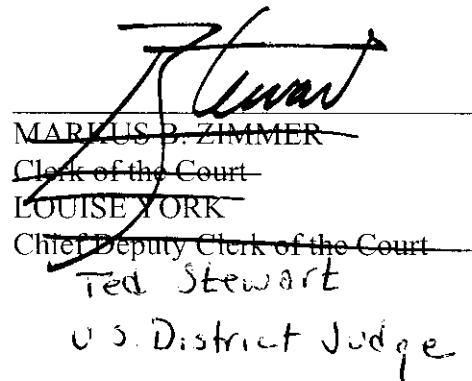 Stewart
MARKUS B. ZIMMER
Clerk of the Court
LOUISE YORK
Chief Deputy Clerk of the Court
Ted Stewart
U S. District Judge